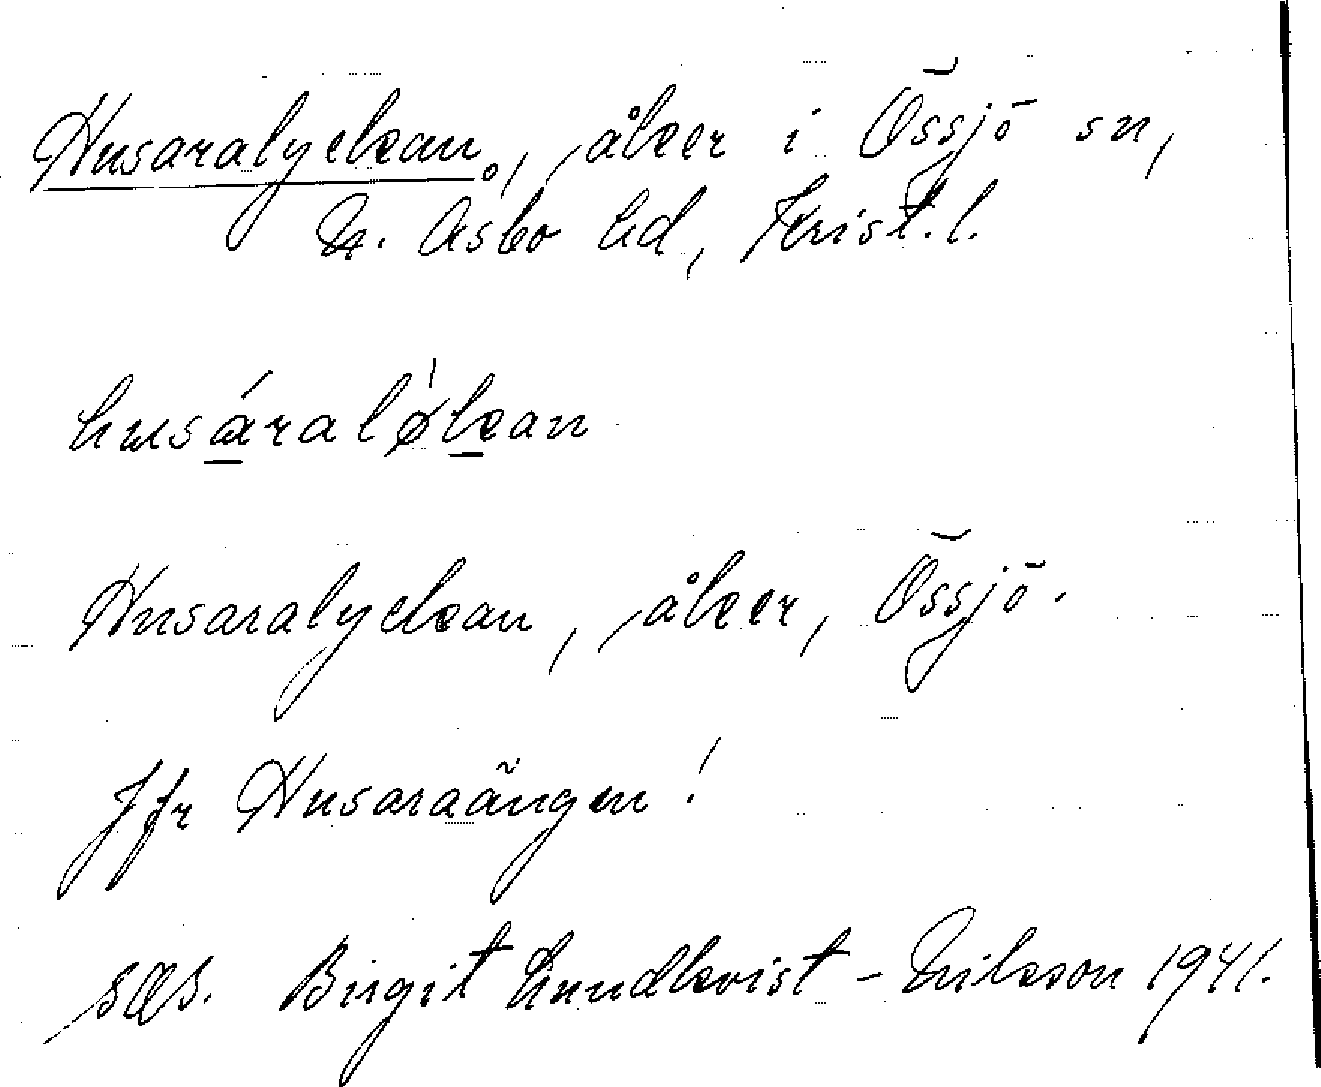 Husaralyckan, åker i Össjö sn,
N. Åsbo hd, Krist. l.
husáraløkan
Husaralyckan, åker, Össjö.
Jfr Husaraängen!
sgs. Birgit Lundkvist - Erikson 1941.